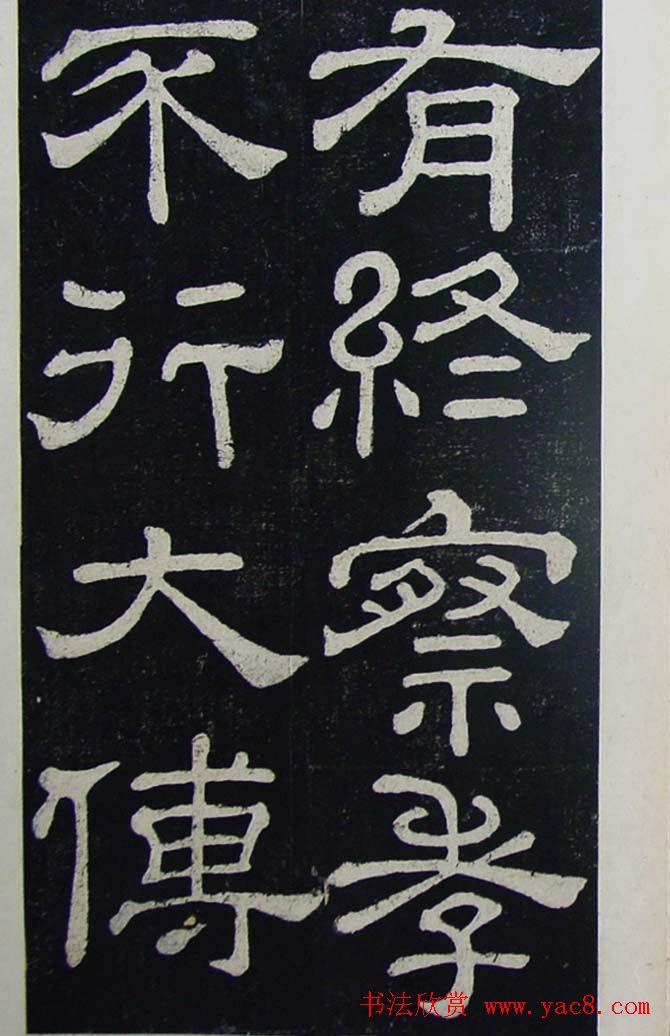 有終察孝
不行大傅
书法欣赏 www.yac8.com